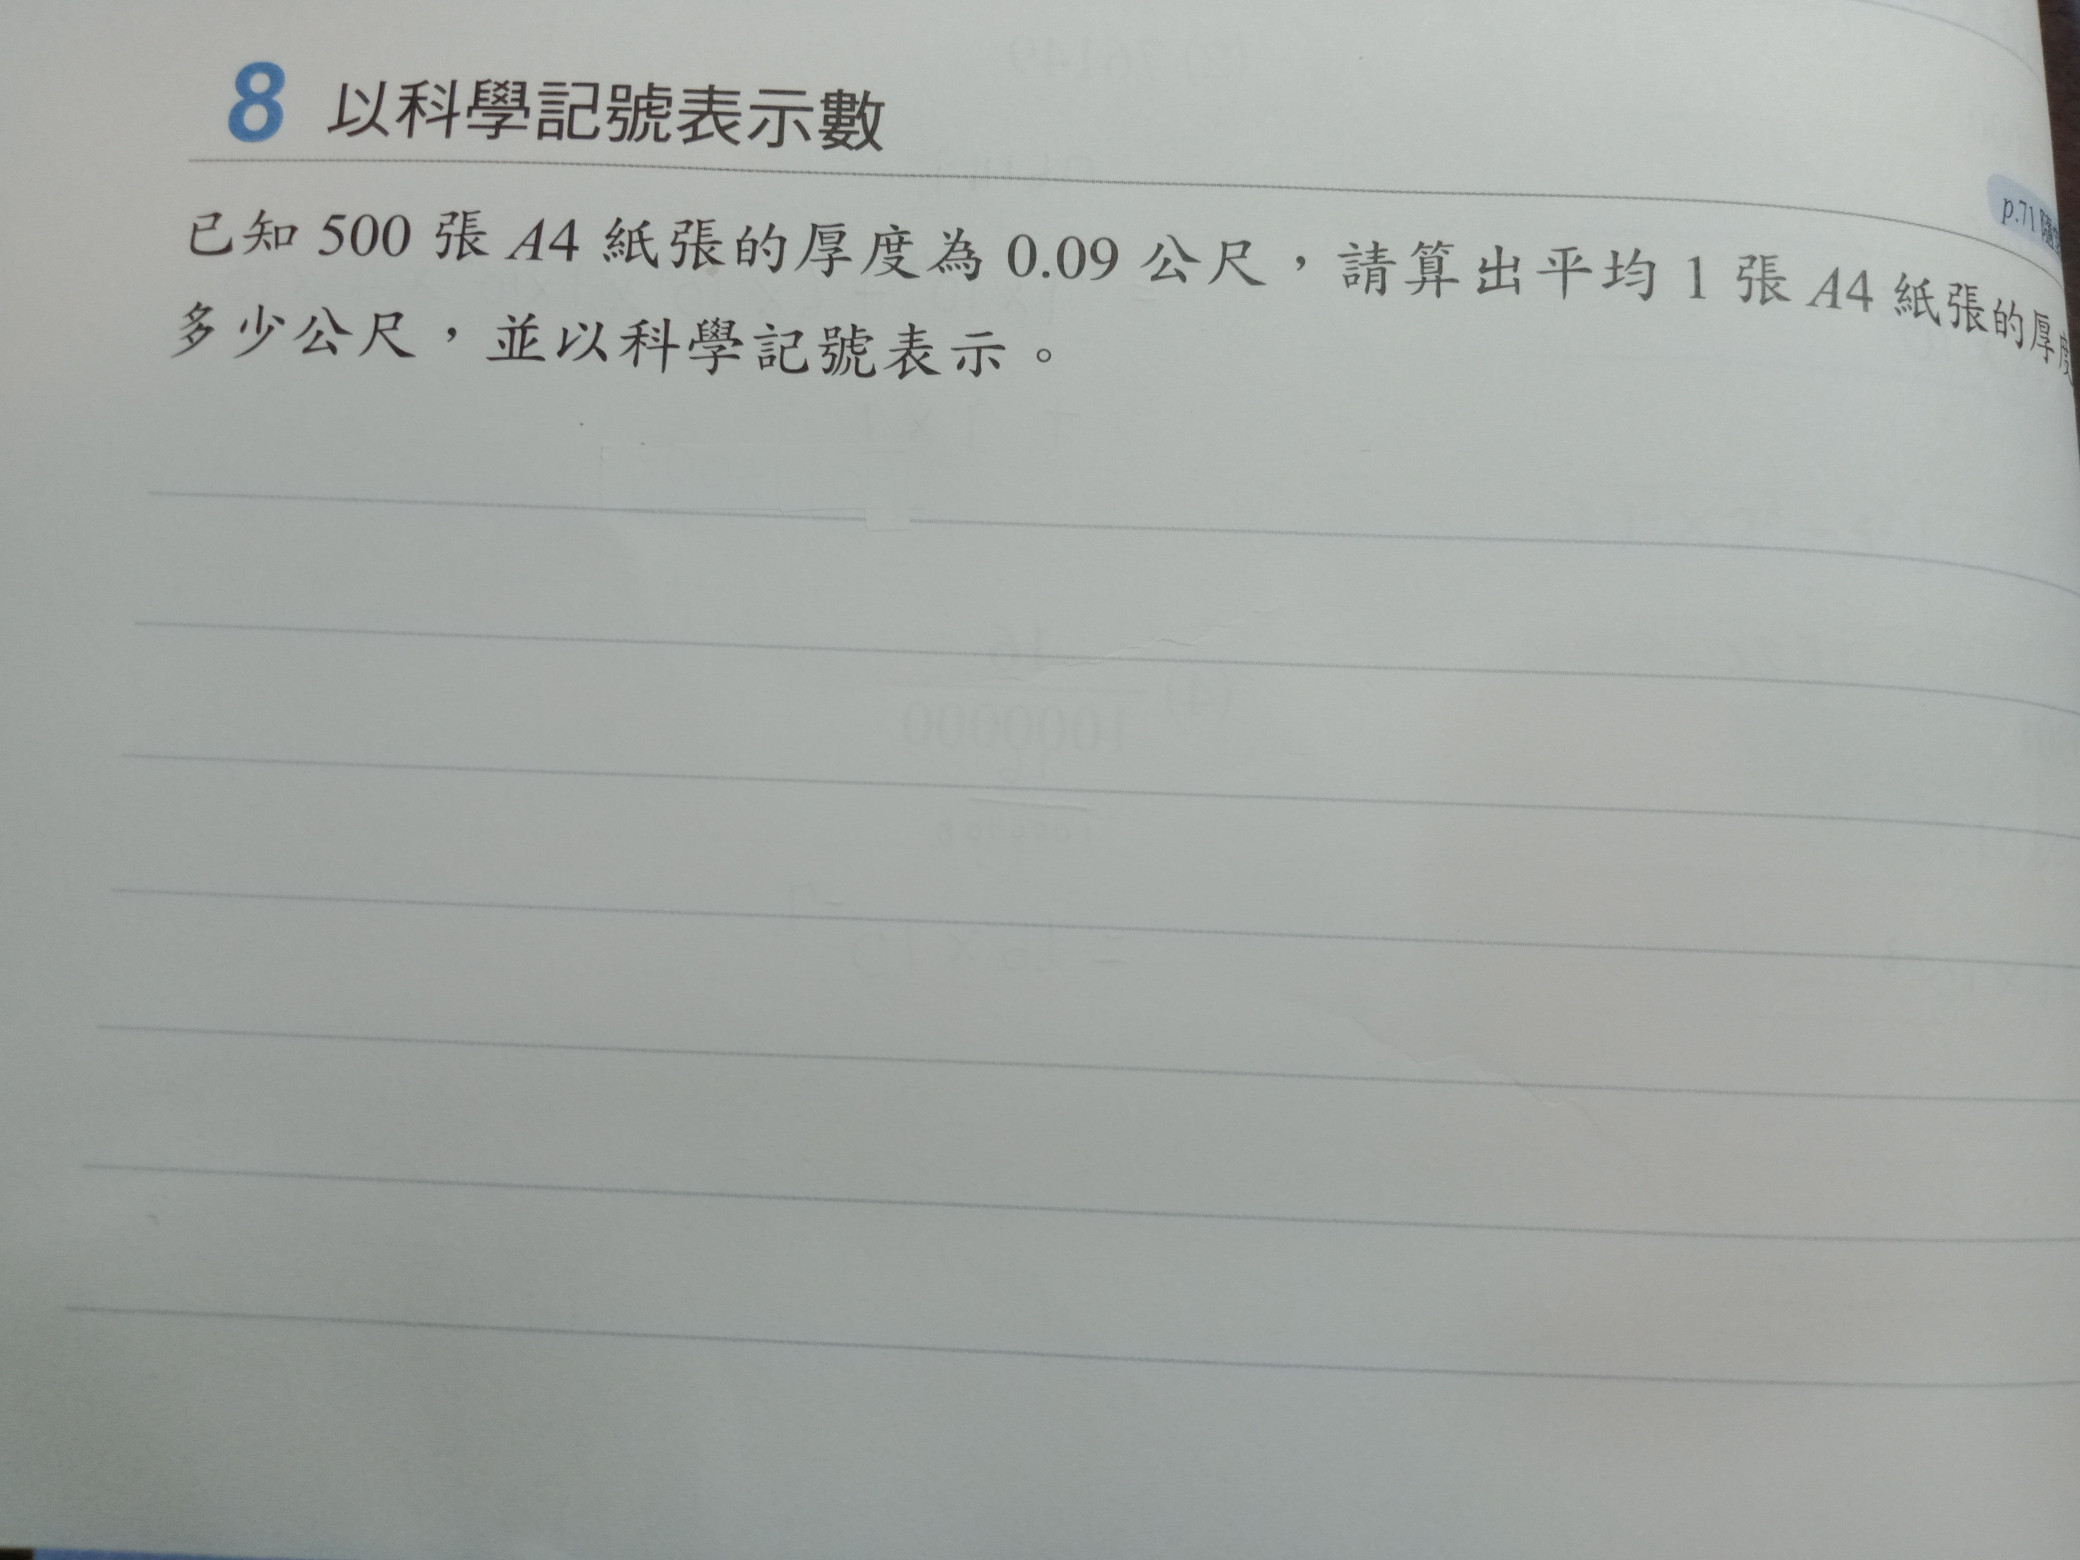 8 以科學記號表示數
p.71 隨
已知 500 張 A4 紙張的厚度為 0.09 公尺，請算出平均 1 張 A4 紙張的厚度
多少公尺，並以科學記號表示。